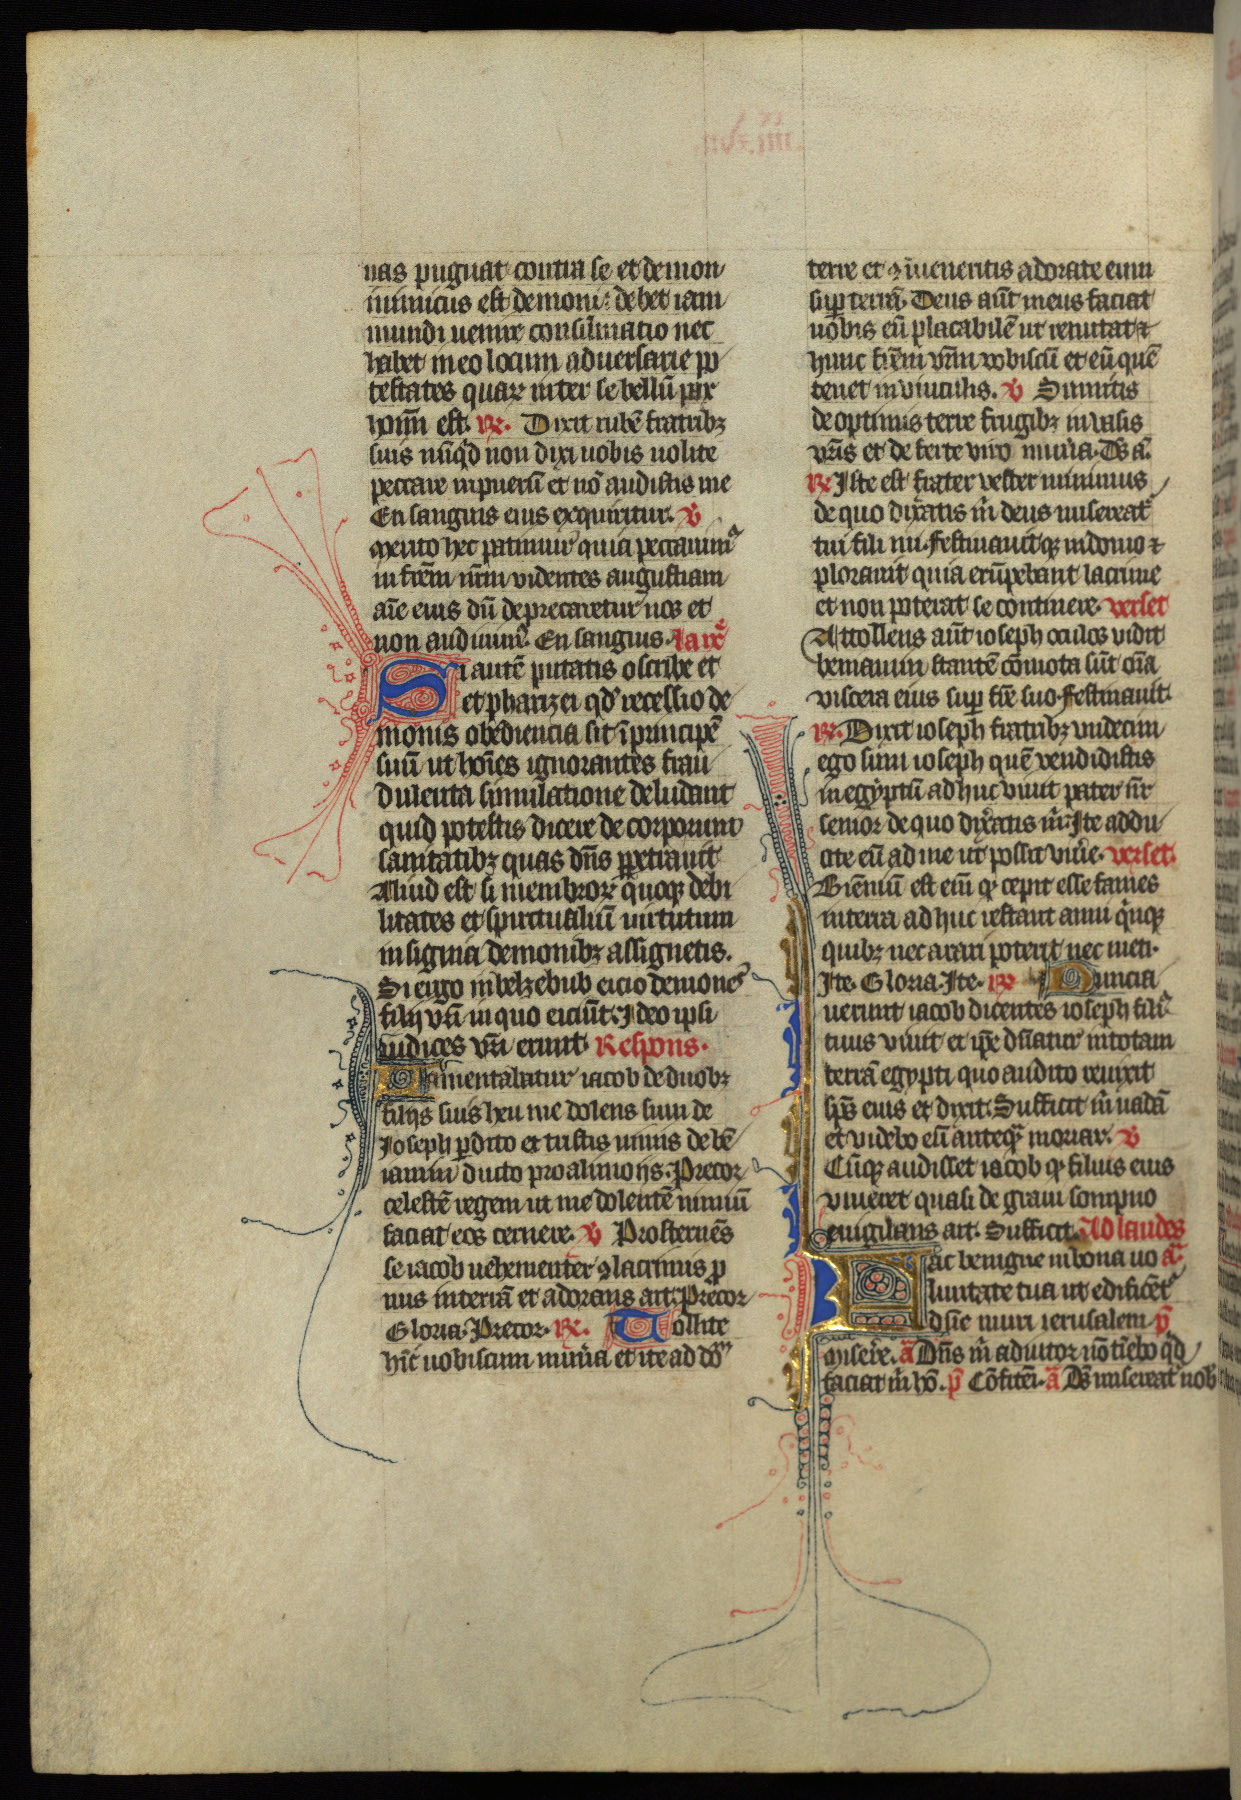 nas pugnat contra se et demon
inimicus est demoni: debet iam
mundi uenire consūmatio nec
habet in eo locum aduersarie po
testates quaꝝ inter se bellū pax
hoīm est. ℟. Dixit rubē fratribꝫ
suis nūqͥd non dixi uobis nolite
peccare in puerū et nō audistis me
En sanguis eius exquiritur. ℣
Merito hec patimur quia peccauimꝰ
in frēm nr̄m videntes angustiam
aīe eius dū deprecaretur nos et
non audiuimꝰ. En sanguis.
Si autē putatis o scribe et
et pharizei qd̓ recessio de
monis obediencia sit ī principē
suū ut hoīes ignorantes frau
dulenta simulatione deludant
quid potestis dicere de corporum
sanitatibꝫ quas dn̄s ꝑpetrauit
Aliud est si membroꝝ quoqꝫ debi
litates et spiritualiū uirtutum
insignia demonibꝫ assignetis.
Si ergo in belzebub eicio demones
filij vr̄i in quo eiciūt. Ideo ipsi
iudices vr̄i erunt. Respons.
Lamentabatur iacob de duobꝫ
filijs suis heu me dolens sum de
Ioseph ꝑdito et tristis nimis de bē
iamin ducto pro alimonijs. Precor
celestē regem ut me dolentē nimiū
faciat eos cernere. ℣ Prosternēs
se iacob uehementer ꝯ lacrimis ꝓ
nus in terrā et adorans ait. Precor
Gloria. Precor. ℟. Tollite
hīc uobiscum mun̓a et ite ad dōm
terre et ꝯ inueneritis adorate eum
suꝑ terrā. Deus aūt meus faciat
uobis eū placabilē ut remittat ⁊
hunc frēm vr̄m vobiscū et eū quē
tenet in vinculis. ℣ Sumitis
de optimis terre frugibꝫ in vasis
vr̄is et de ferte viro mun̓a. Ds a.
℟ Iste est frater vester minimus
de quo dixatis m̄ deus misereat̓
tui fili mi. Festinauitqꝫ in domo ⁊
plorauit quia erūpebant lacrime
et non poterat se continere. verset
Attollens aūt ioseph oculos vidit
beniamin stantē cōmota sūt oīa
viscera eius suꝑ frē suo. Festinauit.
℟. Dixit ioseph fratribꝫ undecim
ego sum ioseph quē vendidistis
in egyptū ad huc viuit pater nr̄
senior de quo dixatis m̄. Ite addu
cite eū ad me ut possit viu̓e. verset.
Biēniū est eim̄ qꝫ cepit esse fames
in terra ad huc restant anni qͥnqꝫ
quibꝫ nec arari poterit nec meti.
Ite. Gloria. Ite. ℟ Nuncia
uerunt iacob dicentes ioseph filiꝰ
tuus viuit et ip̄e dn̄atur in totam
terrā egypti quo audito reuixit
sp̄s eius et dixit. Sufficit m̄ uadā
et videbo eū anteqͣ moriar. ℣
Cūqꝫ audisset iacob qꝫ filius eius
viueret quasi de graui sompno
euigilans ait. Sufficit. Ad laudes
Fac benigne in bona uo a.
luntate tua ut edificētꝰ
dsīe muri ierusalem. p̄
Miser̓e. ā Dn̄s m̄ adiutor nō timebo qͥd
faciat m̄ hō. p̄ Cōfitēi. ā Ds misereat̓ nob̓